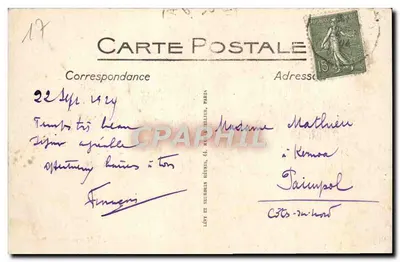 17
CARTE POSTALE
Correspondance
Adresse
22 Sept. 1924
Temps très beau
Séjour agréable
à tous
François
LÉVY ET NEURDEIN RÉUNIS, PARIS
Madame Mathieu
à
Paimpol
Côtes-du-Nord
CPAPHIL